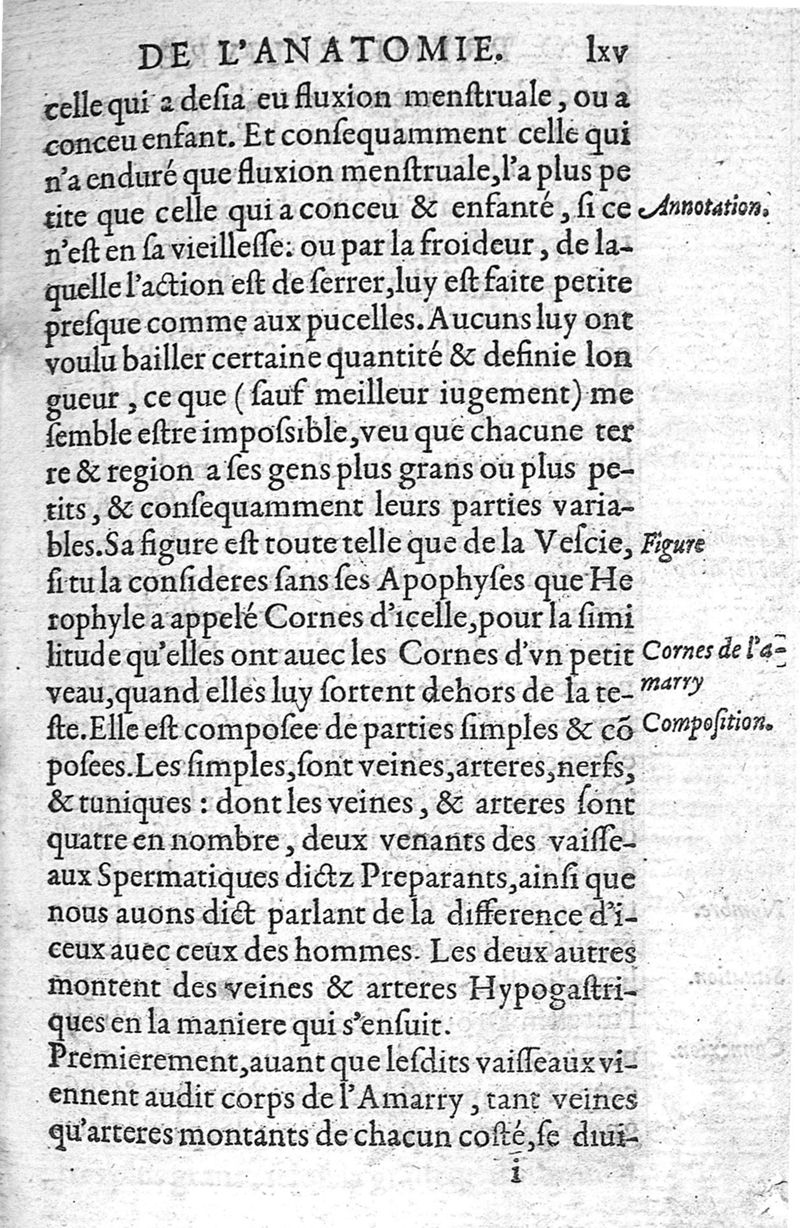 DE L'ANATOMIE. lxv
celle qui a desia eu fluxion menſtruale, ou a
conceu enfant. Et conſequamment celle qui
n'a enduré que fluxion menſtruale,l'a plus pe
tite que celle qui a conceu & enfanté, ſi ce
Annotation.
n'eſt en ſa vieilleſſe: ou par la froideur, de la-
quelle l'action eſt de ſerrer,luy eſt faite petite
preſque comme aux pucelles. Aucuns luy ont
voulu bailler certaine quantité & definie lon
gueur, ce que (ſauf meilleur iugement) me
ſemble eſtre impoſsıble,veu que chacune ter
re & region a ſes gens plus grans ou plus pe-
tits, & conſequamment leurs parties varia-
bles. Sa figure eſt toute telle que de la Veſcie,
Figure
ſi tu la conſideres ſans ſes Apophyſes que He
rophyle a appelé Cornes d'icelle,pour la ſimi
litude qu'elles ont auec les Cornes d'vn petit
Cornes de l'a-
veau,quand elles luy ſortent dehors de la te-
marry
ſte. Elle eſt compoſee de parties ſimples & cõ
Compoſition.
poſees. Les ſimples,ſont veines,arteres,nerfs,
& tuniques : dont les veines, & arteres ſont
quatre en nombre, deux venants des vaiſſe-
aux Spermatiques dictz Preparants,ainſi que
nous auons dict parlant de la difference d'i-
ceux auec ceux des hommes. Les deux autres
montent des veines & arteres Hypogaſtri-
ques en la maniere qui s'enſuit.
Premierement,auant que leſdits vaiſſeaux vi-
ennent audit corps de l'Amarry, tant veines
qu'arteres montants de chacun coſté,ſe diui-
i